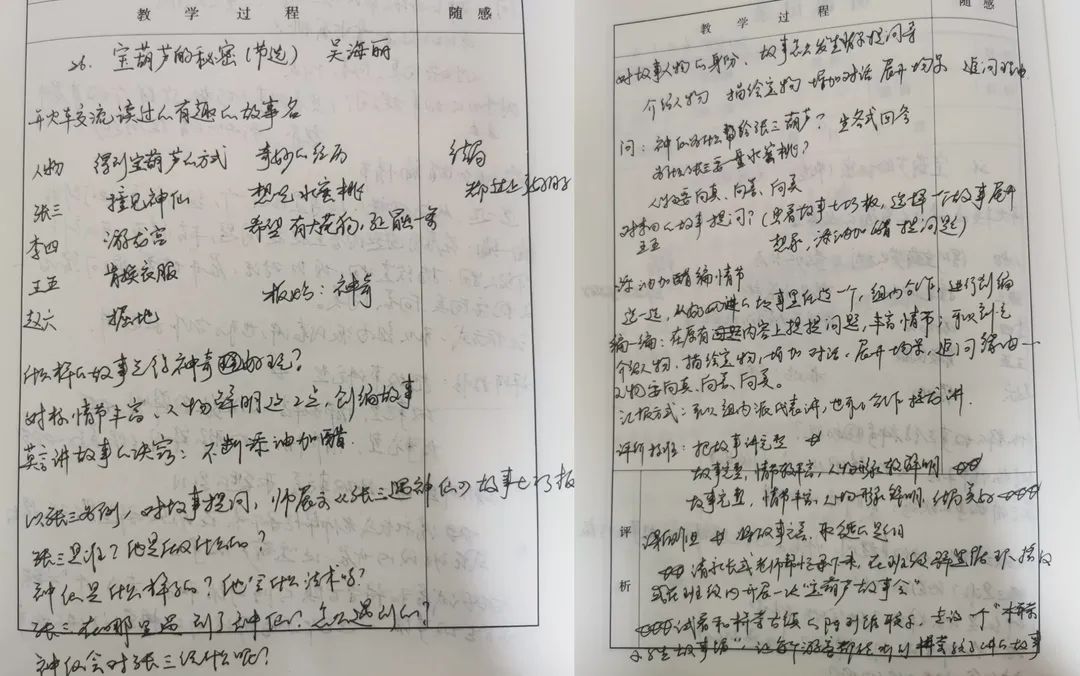 教 学 过 程
随 感
26. 宝葫芦的秘密(节选) 吴海丽
开火车交流读过的有趣的故事名
人物 得到宝葫芦的方式 奇妙的经历 结局
张三 撞见神仙 想吃水蜜桃
李四 游龙宫 希望有大花狗,
王五 肯换衣服
赵六 掘地
板贴:神奇
什么样的故事
对标情节丰富、人物鲜明这2点,创编故事
莫言讲故事的诀窍:不断添油加醋.
以张三为例,对故事提问,师展示《张三遇神仙》故事七巧板
张三是谁?他是做什么的?
神仙是什么样的?他会什么法术呢?
张三在哪里遇到了神仙?怎么遇到的?
神仙会对张三说什么呢?
教 学 过 程
随 感
对故事人物的身份、故事怎么发生等提问寻
介绍人物 描绘宝物 增加对话 展开场景 追问理由
问:神仙为什么给张三葫芦? 生各式回答
为什么张三要拿水蜜桃?
人物要向真、向善、向美
对李四的故事提问?(出示故事七巧板,选择一个故事展开
王五 想象,添油加醋提问题)
添油加醋编情节
选一选,从的故事里任选一个,组内合作,进行创编
编一编:在原有内容上提提问题,丰富情节;可以创意
介绍人物、描绘宝物、增加对话、展开场景、追问缘由
人物要向真、向善、向美。
汇报方式:可以组内派代表讲,也可以合作接龙讲.
评价标准:把故事讲完整
故事完整,情节较丰富,人物形象较鲜明
故事完整,情节丰富,人物形象鲜明,结局美好
评 析
课后
请家长或老师帮忙录下来,在班级
或在班级内开展一次"宝葫芦故事会"
试着和
学生故事场",让每个游客都能听到